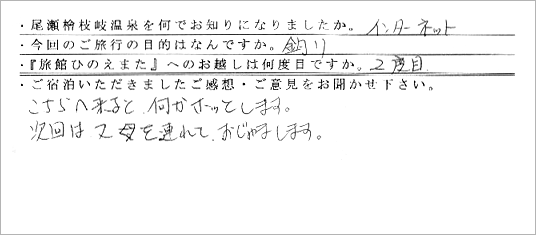 ・尾瀬檜枝岐温泉を何でお知りになりましたか。インターネット
・今回のご旅行の目的はなんですか。釣り
・『旅館ひのえまた』へのお越しは何度目ですか。2度目
・ご宿泊いただきましたご感想・ご意見をお聞かせ下さい。
こちらへ来ると、何かホッとします。
次回は又母を連れて、おじゃまします。